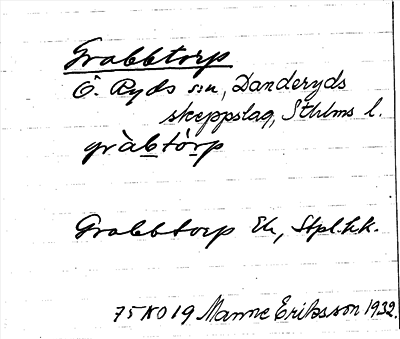 Grabbtorp
Ö. Ryds sn, Danderyds
skeppslag, Sthlms l.
gràbtórp
Grabbtorp Ek, Stpl.bk.
75 KO 19 Manne Eriksson 1932.